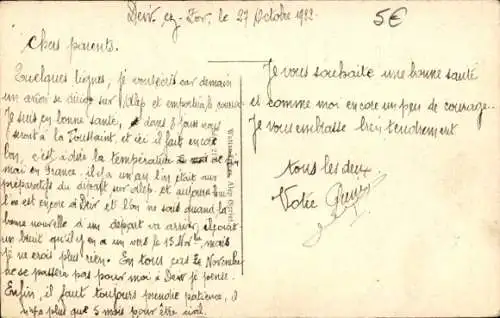 Deir, ez-Zor, le 27 Octobre 1922
5€
Chers parents.
Quelques lignes, je vous écris car demain
un avion se dirige sur Alep et emportera
Je suis en bonne santé, dans 3 jours nous
serons à la Toussaint, et ici il fait encore
bon, c'est à dire la température de
mai en France. il y a un an l'on était aux
préparatifs du départ sur Alep. et aujourd'hui
l'on est encore à Deir et l'on ne sais quand la
bonne nouvelle d'un départ va arriver, il court
un bruit qu'il y en a un vers le 15 Nov, mais
je ne crois plus rien. En tous cas le Novembre
ne se passera pas pour moi à Deir je pense.
Enfin, il faut toujours prendre patience, il
n'y a plus que 5 mois pour être civil.
Je vous souhaite une bonne santé
et comme moi encore un peu de courage..
Je vous embrasse bien tendrement
tous les deux
Votre